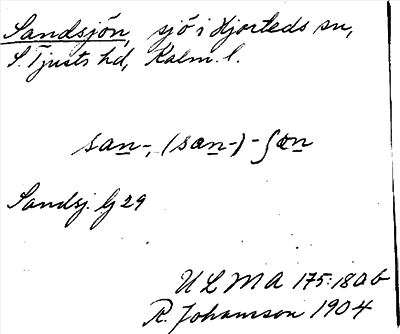 Sandsjön, sjö i Hjorteds sn,
S. Tjusts hd, Kalm. l.
san-, (san-) -ʃøn
Sandsj. Gj 29
ULMA 175:18 a b
R. Johansson 1904